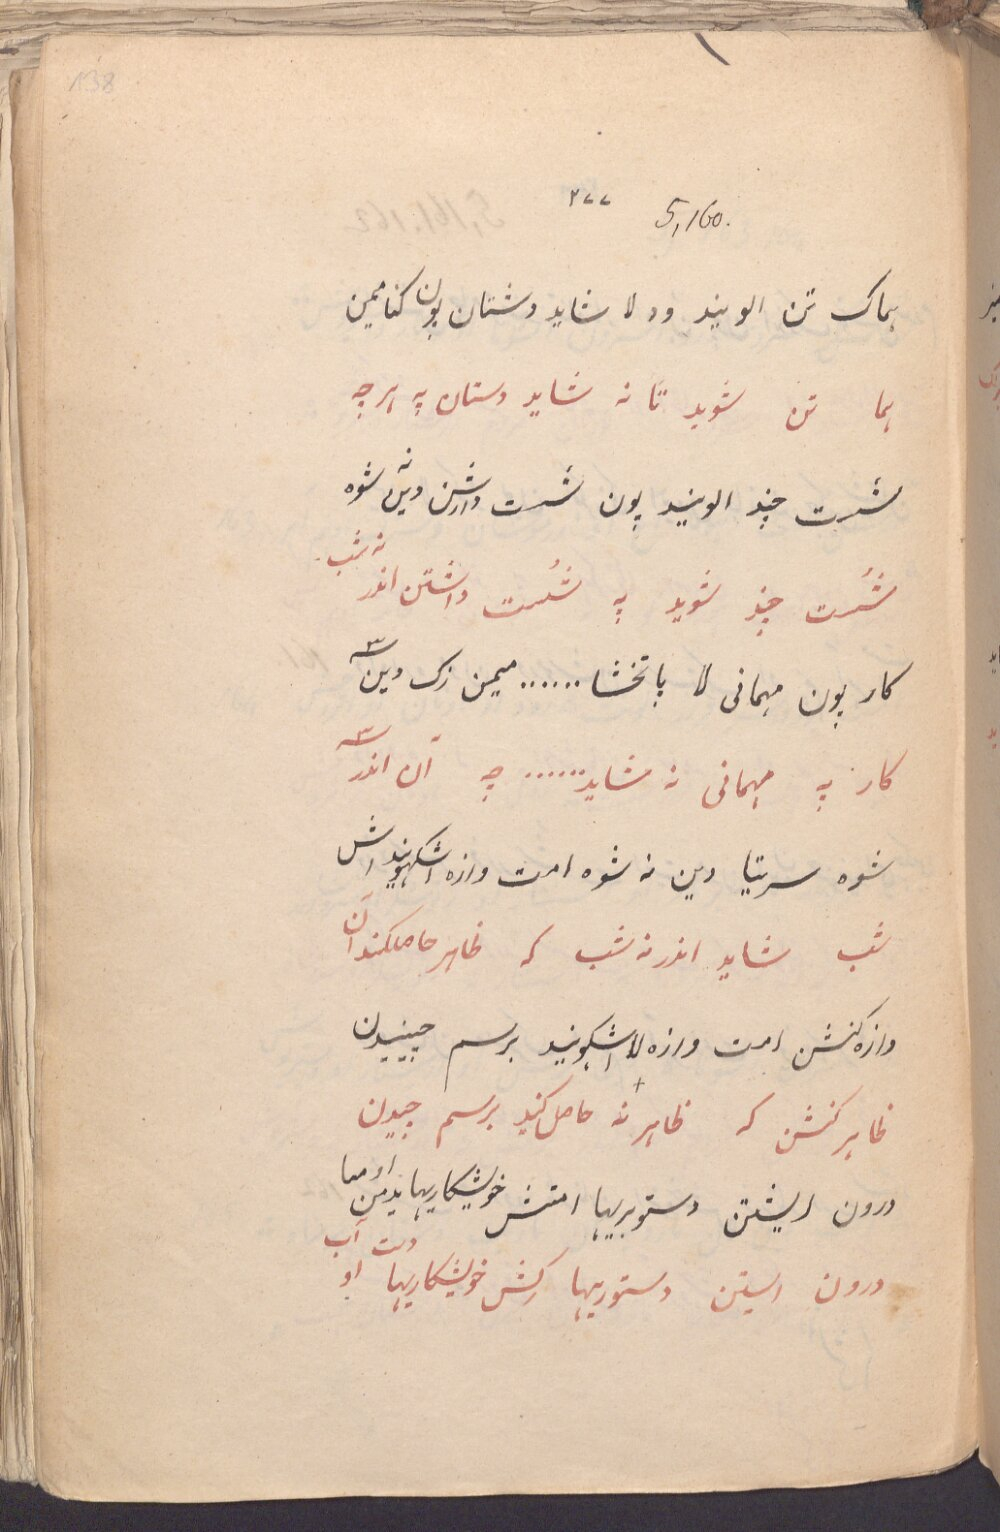 138
۲۷۷ 5,160.
بماک تن الویند ود لا شاید دشتان پون کنا ممن
بها تن شوید تا نه شاید دستان په هر چه
شست چند الویند پون شست دارشن دین نه شوه
شست چند شوید په شست داشتن اندر نه شب
کار پون مهمانی لا پاتخشا ...... میمن زک دین ۳
کار په مهمانی نه شاید ...... چه آن اندر ۳
شوه سریتیا دین نه شوه امت واژه اشکهویند اش
شب شاید اندر نه شب که ظاهر حاصلکند آن
واژه کنشن امت واژه لا اشکهویند برسم چینیدن
ظاهر کنشن که ظاهر نه حاصل کند برسم چیدن
درون ایشتن دستوبریها امتش خویشکاریها یدمن او میا
درون ایستن دستوریها رکش خویشکاریها او دست آب